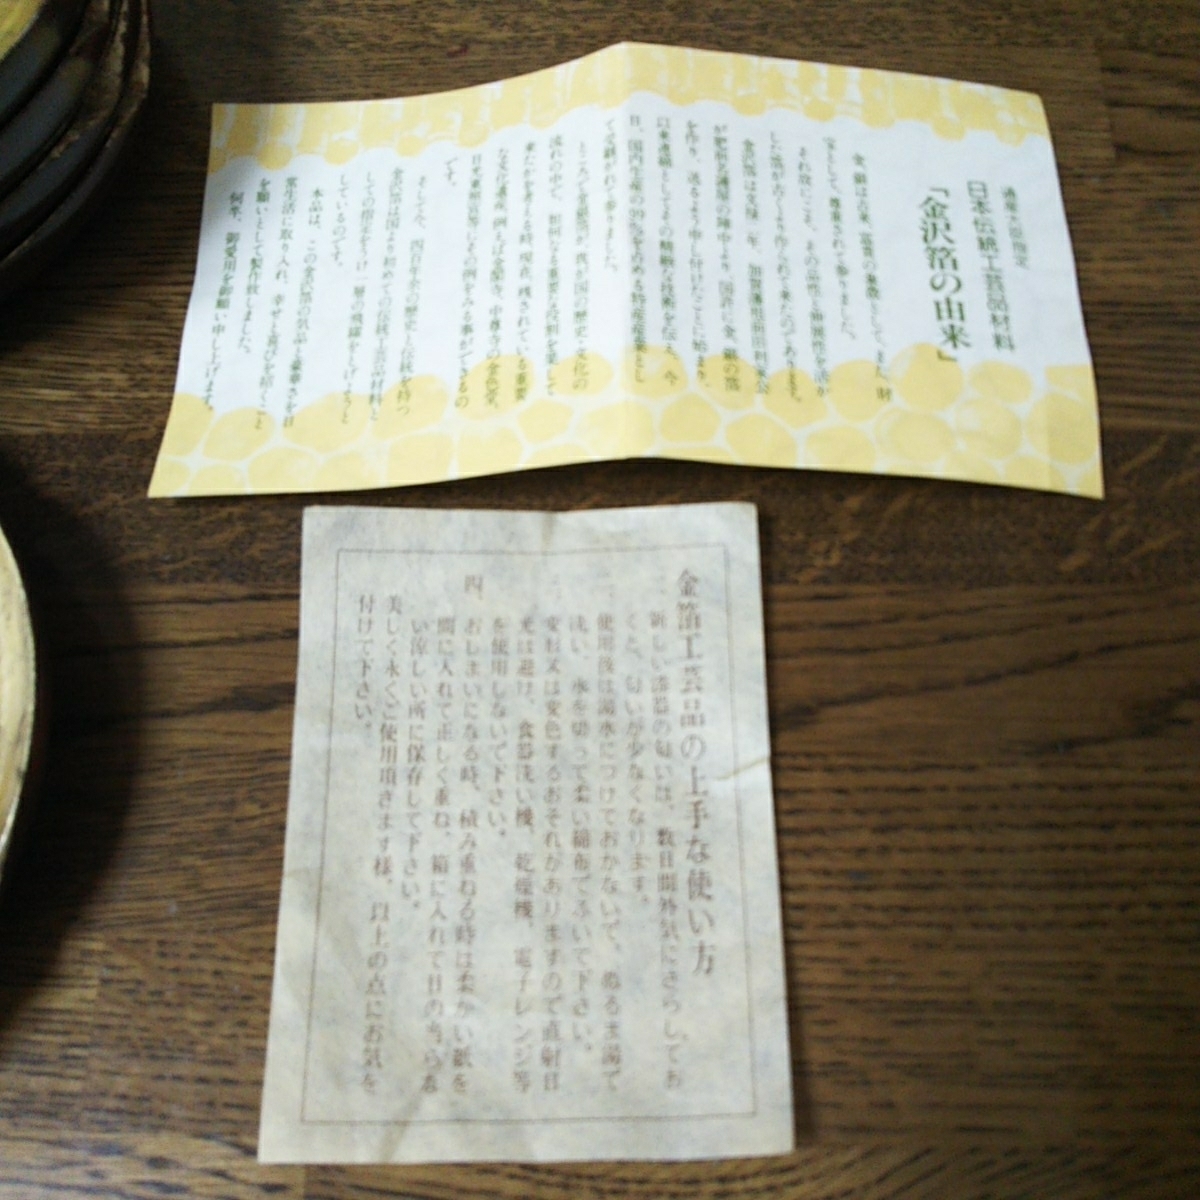 通産大臣指定
日本伝統工芸品材料
「金沢箔の由来」
金、銀は古来、富貴の象徴として、また、財
宝として、尊重されて参りました。
それ故にこそ、その品性と伸展性を活か
した箔が古くより作られて来たのであります。
金沢箔は文禄二年、加賀藩祖前田利家公
が肥前名護屋の陣中より、国許に金、銀の箔
を作り、送るよう申し付けたことに始まり、
以来連綿としてその精緻な技術を伝え、今
日、国内生産の99%を占める特産産業とし
て受継がれて参りました。
ところで金銀箔が、我が国の歴史・文化の
流れの中で、如何なる重要な役割を果して
来たかを考える時、現在、残されている重要
な文化遺産、例えば金閣寺、中尊寺の金色堂、
日光東照宮等にその例をみる事ができるの
です。
そして今、四百年余の歴史と伝統を持つ
金沢箔は国より初めての伝統工芸品材料と
しての指定をうけ一層の飛躍をしようと
しているのです。
本品は、この金沢箔の気品と豪華さを日
常生活に取り入れ、幸せと喜びを招くこと
を願いとして製作致しました。
何卒、御愛用を御願い申し上げます。
金箔工芸品の上手な使い方
一、新しい漆器の匂いは、数日間外気にさらしてお
くと、匂いが少なくなります。
二、使用後は湯水につけておかないで、ぬるま湯で
洗い、水を切って柔い綿布でふいて下さい。
三、変形又は変色するおそれがありますので直射日
光は避け、食器洗い機、乾燥機、電子レンジ等
を使用しないで下さい。
四、おしまいになる時、積み重ねる時は柔かい紙を
間に入れて正しく重ね、箱に入れて日の当らな
い涼しい所に保存して下さい。
美しく永くご使用頂きます様、以上の点にお気を
付けて下さい。